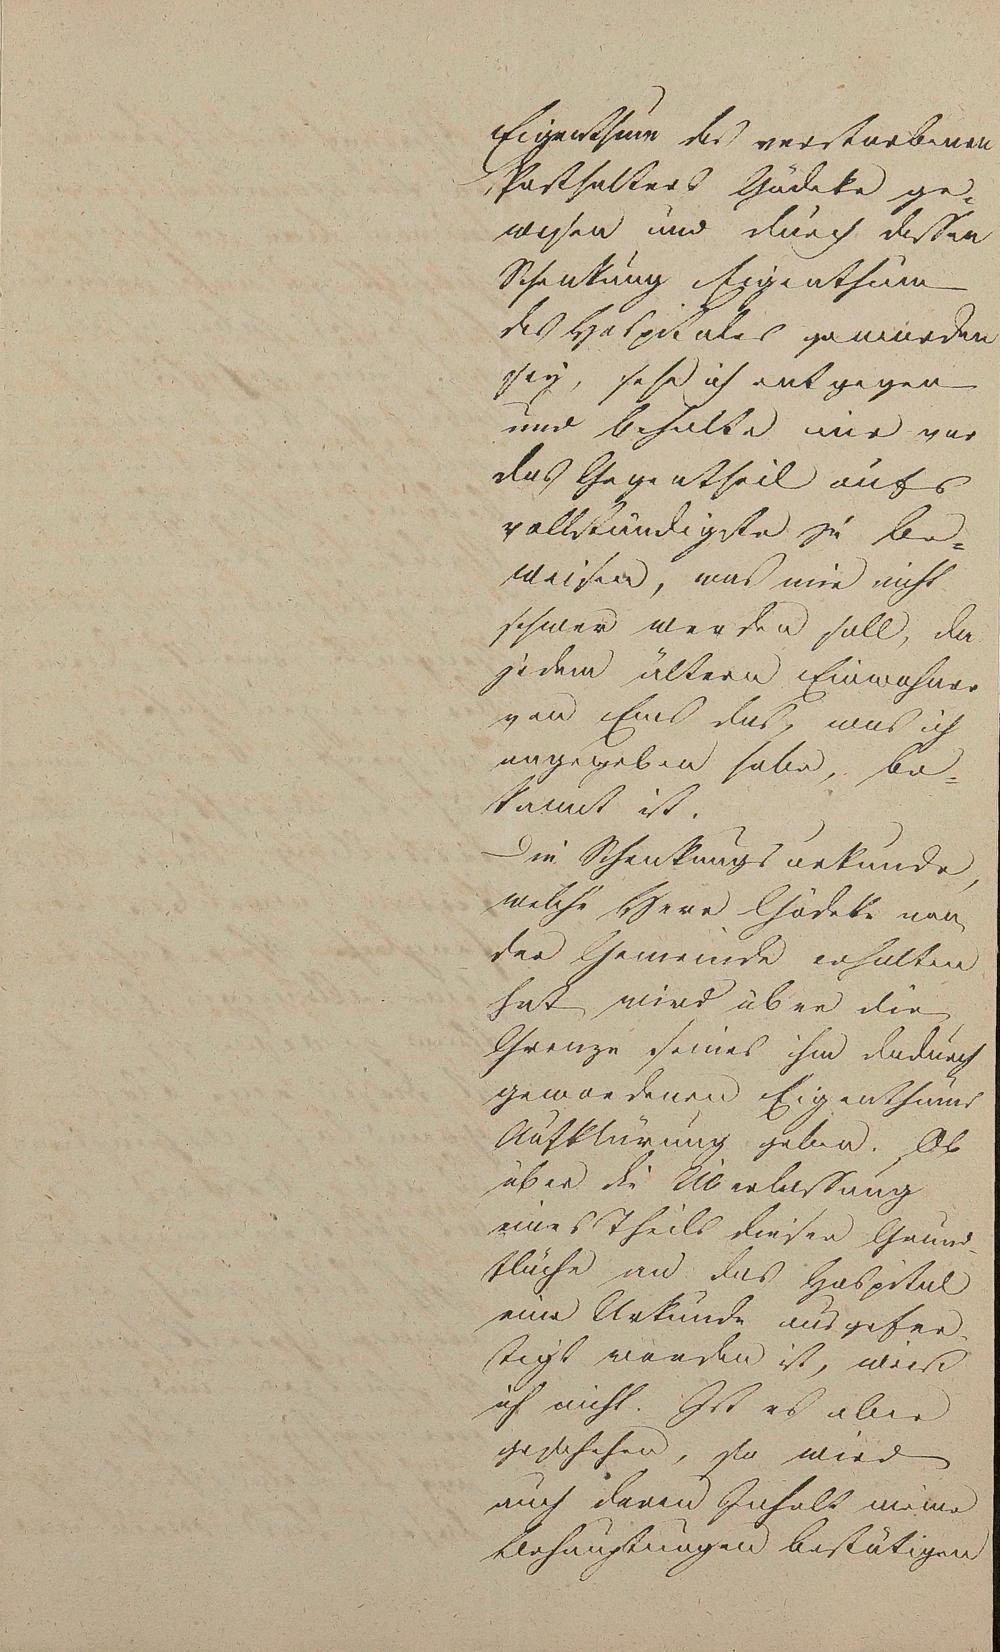 Eigenthum des verstorbenen
Posthalters Gödeke ge-
wesen und durch dessen
Schenkung Eigenthum
des Hospitales geworden
sey, sehe ich entgegen
und behalte mir vor
das Gegentheil aufs
vollständigste zu be-
weisen, was mir nicht
schwer werden soll, da
jedem ältern Einwohner
von Ems das, was ich
angegeben habe, be-
kannt ist.
Die Schenkungsurkunde,
welche Herr Gödeke von
der Gemeinde erhalten
hat wird über die
Grenze seines ihm dadurch
gewordenen Eigenthums
Aufklärung geben. Ob
über die Überlassung
eines Theils dieser Grund-
fläche an das Hospital
eine Urkunde ausgefer-
tigt worden ist, weiß
ich nicht. Ist es aber
geschehen, so wird
auch deren Inhalt meine
Behauptungen bestätigen